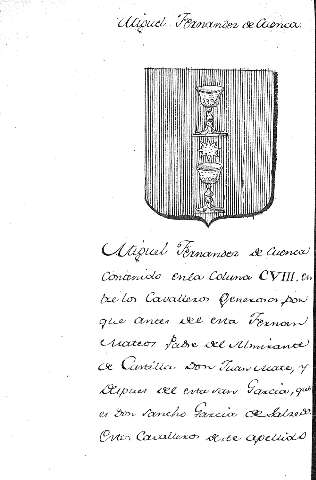 Miguel Fernandez de Cuenca
Miguel Fernandez de Cuenca
Contenido en la Coluna CVIII. en
tre los Cavalleros Generosos, por
que antes del esta Fernan
Mateos Padre del Almirante
de Castilla Don Juan Mate, y
despues del esta san Garcia, que
es Don Sancho Garcia de Salzedo.
Estos Cavalleros deste apellido